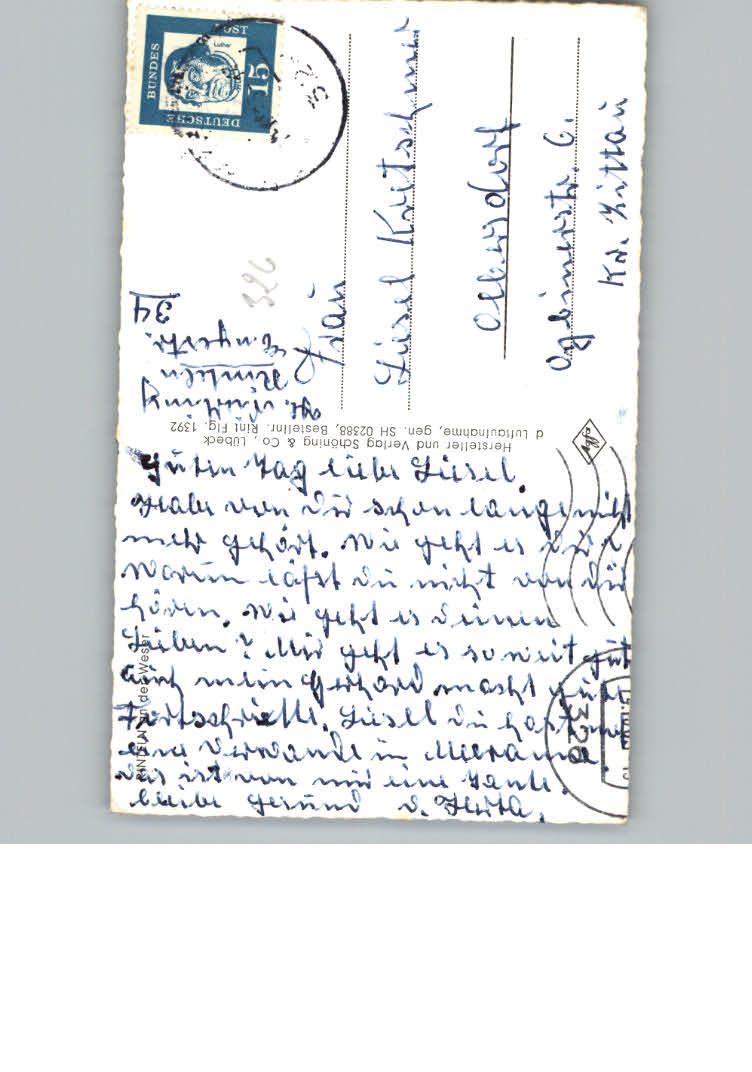 Guten Tag liebe Liesel.
Habe von Dir schon lange nicht
mehr gehört. Wie geht es Dir?
Warum läßt Du nicht von Dir
hören. Wie geht es Deinen
Lieben? Mir geht es soweit gut
auch mein Gerhard macht gute
Fortschritte. Liesel Du hast
eine Verwandte in Meerane.
Das ist von mir eine Tante.
bleibe Gesund D. Herta.
RINTELN an der Weser
Hersteller und Verlag Schöning & Co., Lübeck
d Luftaufnahme, gen. SH 02388, Bestellnr. Rint Flg. 1392
Rinteln
34
326
Frau
Liesel Kretschmer
Olbersdorf
Oybinerstr. 6.
Kr. Zittau
DEUTSCHE
BUNDES
POST
15
Luther
328